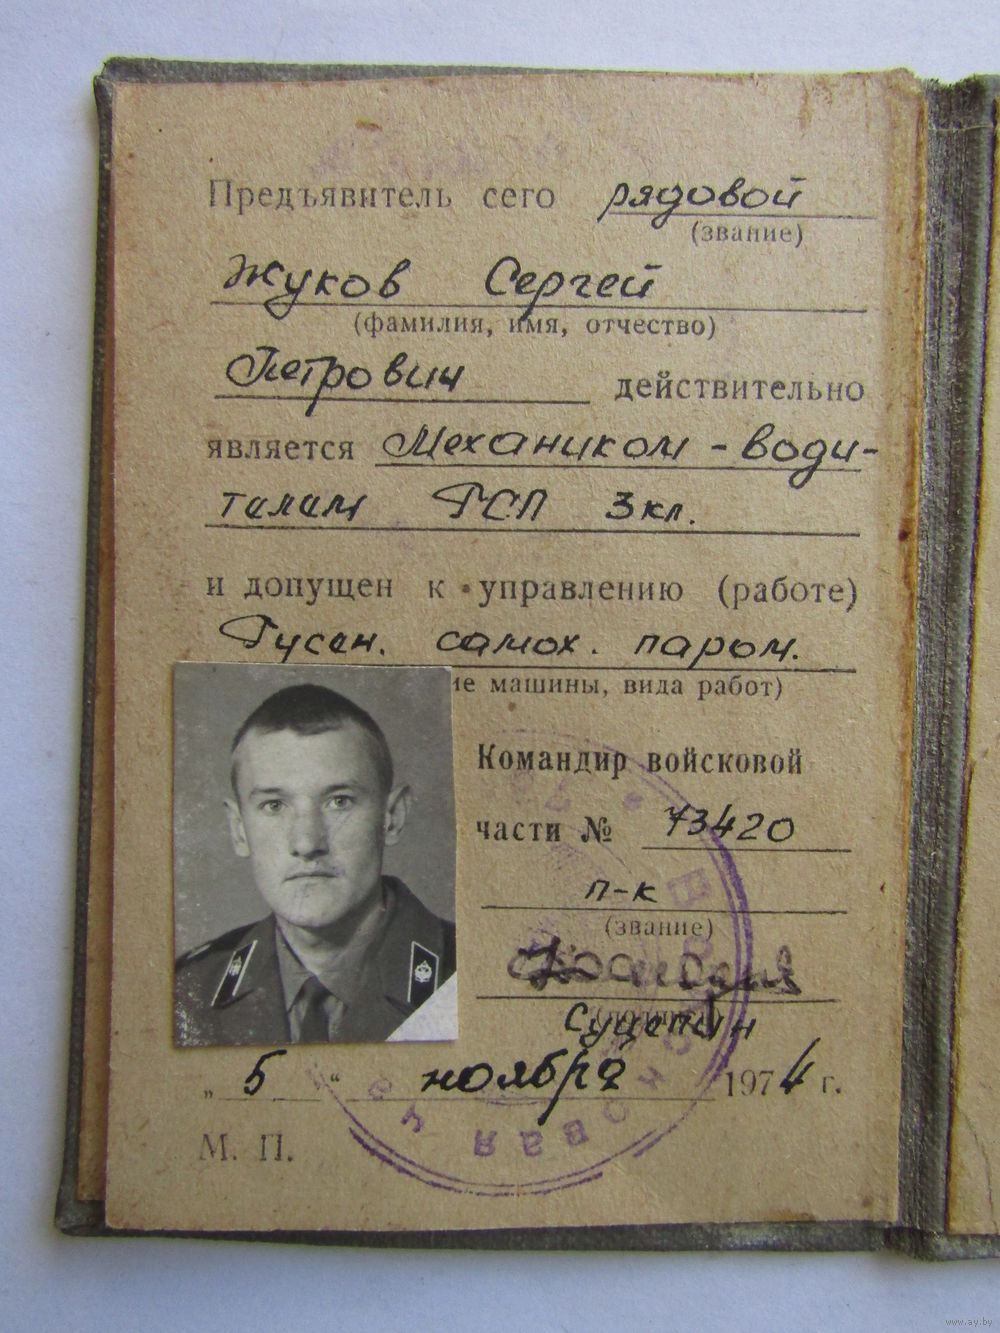 Предъявитель сего рядовой
(звание)
Жуков Сергей
(фамилия, имя, отчество)
Петрович действительно
является Механиком-води-
телем ГСП 3кл.
и допущен к управлению (работе)
Гусен. самох. паром.
ие машины, вида работ)
Командир войсковой
части № 73420
п-к
(звание)
(подпись)
„ 5 “ ноября 1974 г.
М. П.
www.ay.by